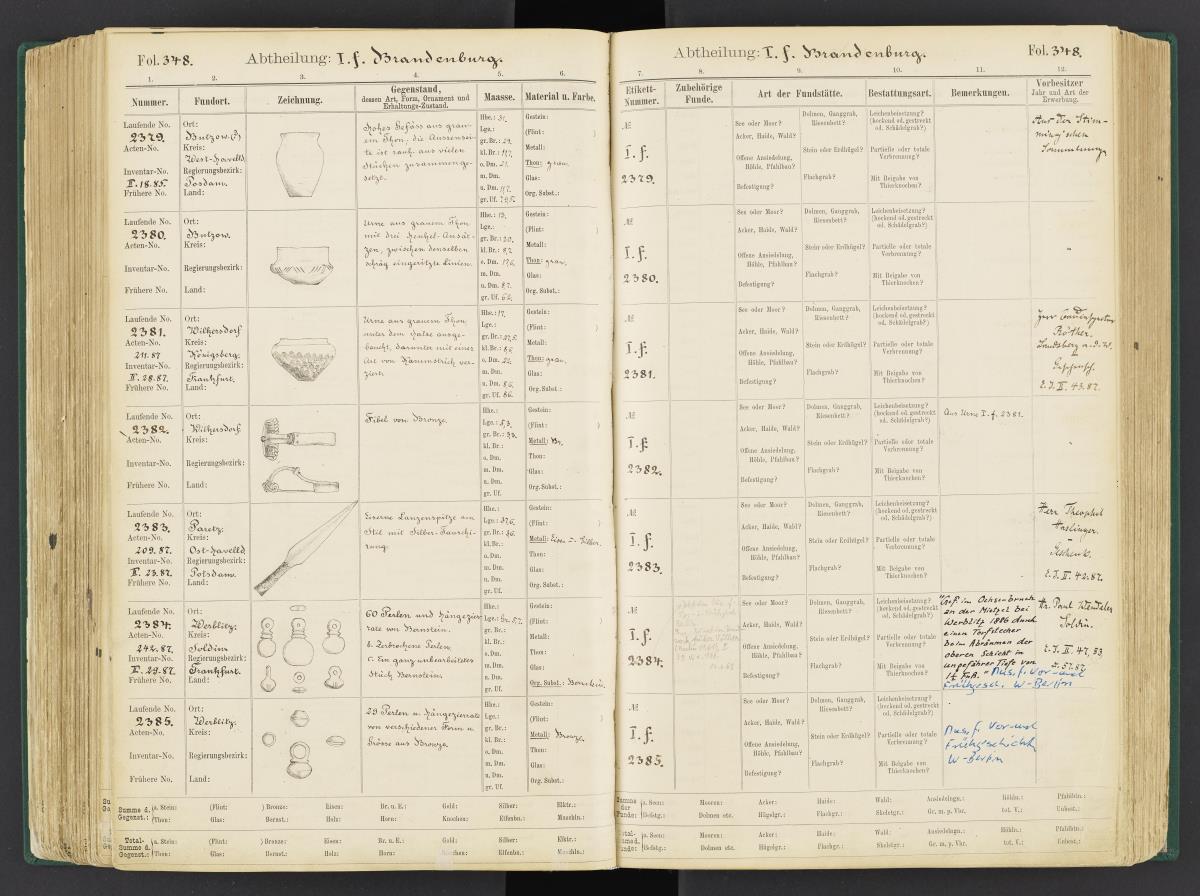 Fol. 348.
Abtheilung: I. f. Brandenburg.
1. 2. 3. 4. 5. 6.
Nummer. Fundort. Zeichnung. Gegenstand, dessen Art, Form, Ornament und Erhaltungs-Zustand. Maasse. Material u. Farbe.
Laufende No.
2379.
Acten-No.
Inventar-No.
II. 18. 85.
Frühere No.
Ort:
Butzow (?)
Kreis:
West-Havelld.
Regierungsbezirk:
Posdam.
Land:
Hohes Gefäss aus grau-
em Thon, die Aussensei-
te ist rauh, aus vielen
Stücken zusammenge-
setzt.
Hhe.: 31.
Lge.:
gr. Br.: 29.
kl. Br.:
o. Dm. 21.
m. Dm.
u. Dm.
gr. Uf.
Gestein:
(Flint: )
Metall:
Thon: grau.
Glas:
Org. Subst.:
Laufende No.
2380.
Acten-No.
Inventar-No.
Frühere No.
Ort:
Butzow.
Kreis:
Regierungsbezirk:
Land:
Urne aus grauem Thon
mit drei Henkel-Ansät-
zen, zwischen denselben
schräg eingeritzte Linien.
Hhe.: 13.
Lge.:
gr. Br.: 20.
kl. Br.: 8,2.
o. Dm. 17,6.
m. Dm.
u. Dm. 8,2.
gr. Uf. 62.
Gestein:
(Flint: )
Metall:
Thon: grau.
Glas:
Org. Subst.:
Laufende No.
2381.
Acten-No.
211. 87
Inventar-No.
II. 28. 87.
Frühere No.
Ort:
Wilkersdorf
Kreis:
Königsberg.
Regierungsbezirk:
Frankfurt.
Land:
Urne aus grauem Thon
unter dem Halse ausge-
baucht, darunter mit einer
Art von Kammstrich ver-
ziert.
Hhe.: 17.
Lge.:
gr. Br.: 27,5.
kl. Br.: 8,6.
o. Dm. 22.
m. Dm.
u. Dm. 8,6.
gr. Uf. 86.
Gestein:
(Flint: )
Metall:
Thon: grau.
Glas:
Org. Subst.:
Laufende No.
2382.
Acten-No.
Inventar-No.
Frühere No.
Ort:
Wilkersdorf.
Kreis:
Regierungsbezirk:
Land:
Fibel von Bronze.
Hhe.:
Lge.: 5,3.
gr. Br.: 3,3.
kl. Br.:
o. Dm.
m. Dm.
u. Dm.
gr. Uf.
Gestein:
(Flint: )
Metall: Br.
Thon:
Glas:
Org. Subst.:
Laufende No.
2383.
Acten-No.
209. 87.
Inventar-No.
II. 23. 87.
Frühere No.
Ort:
Paretz.
Kreis:
Ost-Havelld.
Regierungsbezirk:
Potsdam.
Land:
Eiserne Lanzenspitze am
Stiel mit Silber-Tauschi-
rung.
Hhe.:
Lge.: 37,6.
gr. Br.: 3,6.
kl. Br.:
o. Dm.
m. Dm.
u. Dm.
gr. Uf.
Gestein:
(Flint: )
Metall: Eisen u. Silber.
Thon:
Glas:
Org. Subst.:
Laufende No.
2384.
Acten-No.
242. 87.
Inventar-No.
II. 29. 87.
Frühere No.
Ort:
Werblitz.
Kreis:
Soldin
Regierungsbezirk:
Frankfurt.
Land:
60 Perlen und Hängezier-
rate von Bernstein.
b. Zerbrochene Perlen,
c. Ein ganz unbearbeitetes
Stück Bernstein.
Hhe.:
Lge.:
gr. Br.:
kl. Br.:
o. Dm.
m. Dm.
u. Dm.
gr. Uf.
Gestein:
(Flint: )
Metall:
Thon:
Glas:
Org. Subst.: Bernstein.
Laufende No.
2385.
Acten-No.
Inventar-No.
Frühere No.
Ort:
Werblitz.
Kreis:
Regierungsbezirk:
Land:
29 Perlen u. Hängezierrate
von verschiedener Form u.
Grösse aus Bronze.
Hhe.:
Lge.:
gr. Br.:
kl. Br.:
o. Dm.
m. Dm.
u. Dm.
gr. Uf.
Gestein:
(Flint: )
Metall: Bronze.
Thon:
Glas:
Org. Subst.:
Summe d. Gegenst.: a. Stein: (Flint: ) Bronze: Eisen: Br. u. E.: Gold: Silber: Elktr.:
Thon: Glas: Bernst.: Holz: Horn: Knochen: Elfenbn.: Muschln.:
Total-Summe d. Gegenst.: a. Stein: (Flint: ) Bronze: Eisen: Br. u. E.: Gold: Silber: Elktr.:
Thon: Glas: Bernst.: Holz: Horn: Knochen: Elfenbn.: Muschln.:
Abtheilung: I. f. Brandenburg.
Fol. 348.
7. 8. 9. 10. 11. 12.
Etikett-Nummer. Zubehörige Funde. Art der Fundstätte. Bestattungsart. Bemerkungen. Vorbesitzer Jahr und Art der Erwerbung.
№
I. f.
2379.
See oder Moor? Dolmen, Ganggrab, Riesenbett?
Acker, Haide, Wald?
Stein oder Erdhügel?
Offene Ansiedelung, Höhle, Pfahlbau?
Flachgrab?
Befestigung?
Leichenbeisetzung? (hockend od. gestreckt od. Schädelgrab?)
Partielle oder totale Verbrennung?
Mit Beigabe von Thierknochen?
Aus der Stim-
ming'schen
Sammlung.
№
I. f.
2380.
See oder Moor? Dolmen, Ganggrab, Riesenbett?
Acker, Haide, Wald?
Stein oder Erdhügel?
Offene Ansiedelung, Höhle, Pfahlbau?
Flachgrab?
Befestigung?
Leichenbeisetzung? (hockend od. gestreckt od. Schädelgrab?)
Partielle oder totale Verbrennung?
Mit Beigabe von Thierknochen?
"
№
I. f.
2381.
See oder Moor? Dolmen, Ganggrab, Riesenbett?
Acker, Haide, Wald?
Stein oder Erdhügel?
Offene Ansiedelung, Höhle, Pfahlbau?
Flachgrab?
Befestigung?
Leichenbeisetzung? (hockend od. gestreckt od. Schädelgrab?)
Partielle oder totale Verbrennung?
Mit Beigabe von Thierknochen?
Herr
Röther.
Landsberg a. d. W.
Geschenk.
E. J. II. 43. 87.
№
I. f.
2382.
See oder Moor? Dolmen, Ganggrab, Riesenbett?
Acker, Haide, Wald?
Stein oder Erdhügel?
Offene Ansiedelung, Höhle, Pfahlbau?
Flachgrab?
Befestigung?
Leichenbeisetzung? (hockend od. gestreckt od. Schädelgrab?)
Partielle oder totale Verbrennung?
Mit Beigabe von Thierknochen?
Aus Urne I. f. 2381.
№
I. f.
2383.
See oder Moor? Dolmen, Ganggrab, Riesenbett?
Acker, Haide, Wald?
Stein oder Erdhügel?
Offene Ansiedelung, Höhle, Pfahlbau?
Flachgrab?
Befestigung?
Leichenbeisetzung? (hockend od. gestreckt od. Schädelgrab?)
Partielle oder totale Verbrennung?
Mit Beigabe von Thierknochen?
Herr Theophil
Haslinger.
Geschenk.
E. J. II. 42. 87.
№
I. f.
2384.
See oder Moor? Dolmen, Ganggrab, Riesenbett?
Acker, Haide, Wald?
Stein oder Erdhügel?
Offene Ansiedelung, Höhle, Pfahlbau?
Flachgrab?
Befestigung?
Leichenbeisetzung? (hockend od. gestreckt od. Schädelgrab?)
Partielle oder totale Verbrennung?
Mit Beigabe von Thierknochen?
"Gef. im Ochsenbruch
an der Mietzel bei
Werblitz 1886 durch
einen Torfstecher
beim Abräumen der
oberen Schicht in
ungefährer Tiefe von
1½ Fuß."
Mus. f. Vor- und
Frühgesch. W-Berlin
Hr. Paul
Soldin.
E. J. II. 47, 53
u. 57. 87
№
I. f.
2385.
See oder Moor? Dolmen, Ganggrab, Riesenbett?
Acker, Haide, Wald?
Stein oder Erdhügel?
Offene Ansiedelung, Höhle, Pfahlbau?
Flachgrab?
Befestigung?
Leichenbeisetzung? (hockend od. gestreckt od. Schädelgrab?)
Partielle oder totale Verbrennung?
Mit Beigabe von Thierknochen?
Mus. f. Vor- und
Frühgeschicht.
W-Berlin
Summe der Funde: a. Seen: Mooren: Acker: Haide: Wald: Ansiedelngn.: Höhln.: Pfahlbtn.:
Befstg.: Dolmen etc. Hügelgr.: Flachgr.: Skeletgr.: Gr. m. p. Vbr. tot. V.: Unbest.:
Total-Summe d. Funde: a. Seen: Mooren: Acker: Haide: Wald: Ansiedelngn.: Höhln.: Pfahlbtn.:
Befstg.: Dolmen etc. Hügelgr.: Flachgr.: Skeletgr.: Gr. m. p. Vbr. tot. V.: Unbest.: